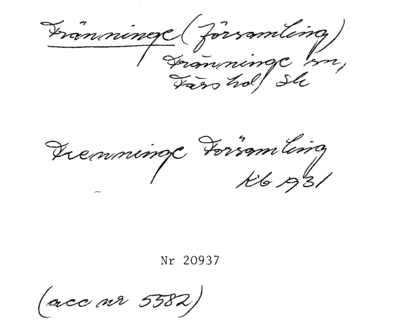 Tränninge (församling)
Tränninge sn,
Färs hd, Sk
Trenninge Församling
Kb 1931
Nr 20937
(acc nr 5582)